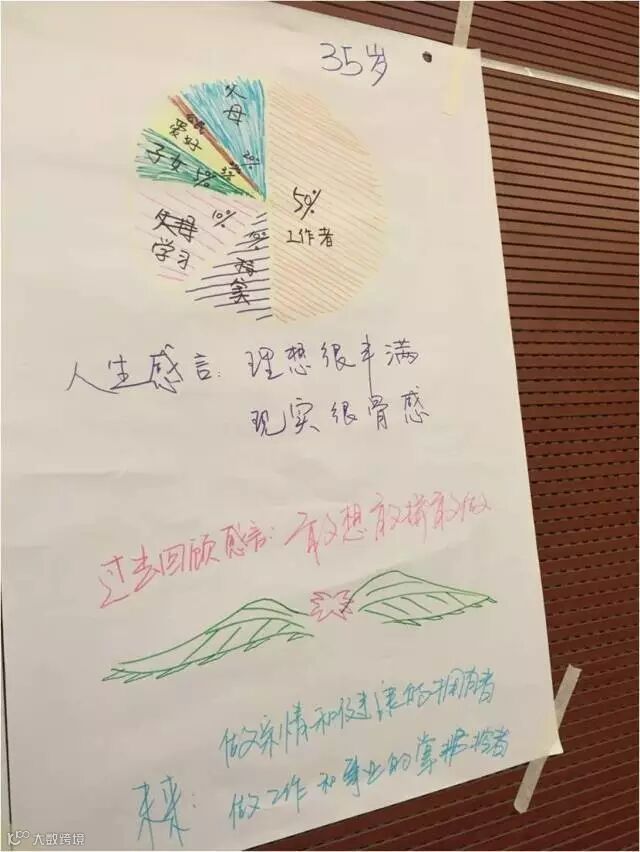 35岁
父母
20%
爱好
子女 5%
50%
工作者
10%
学习
10%
人生感言:理想很丰满
现实很骨感
过去回顾感言:敢想敢拼敢做
做亲情和健康的拥有者
未来:做工作和事业的掌控者
大数跨境